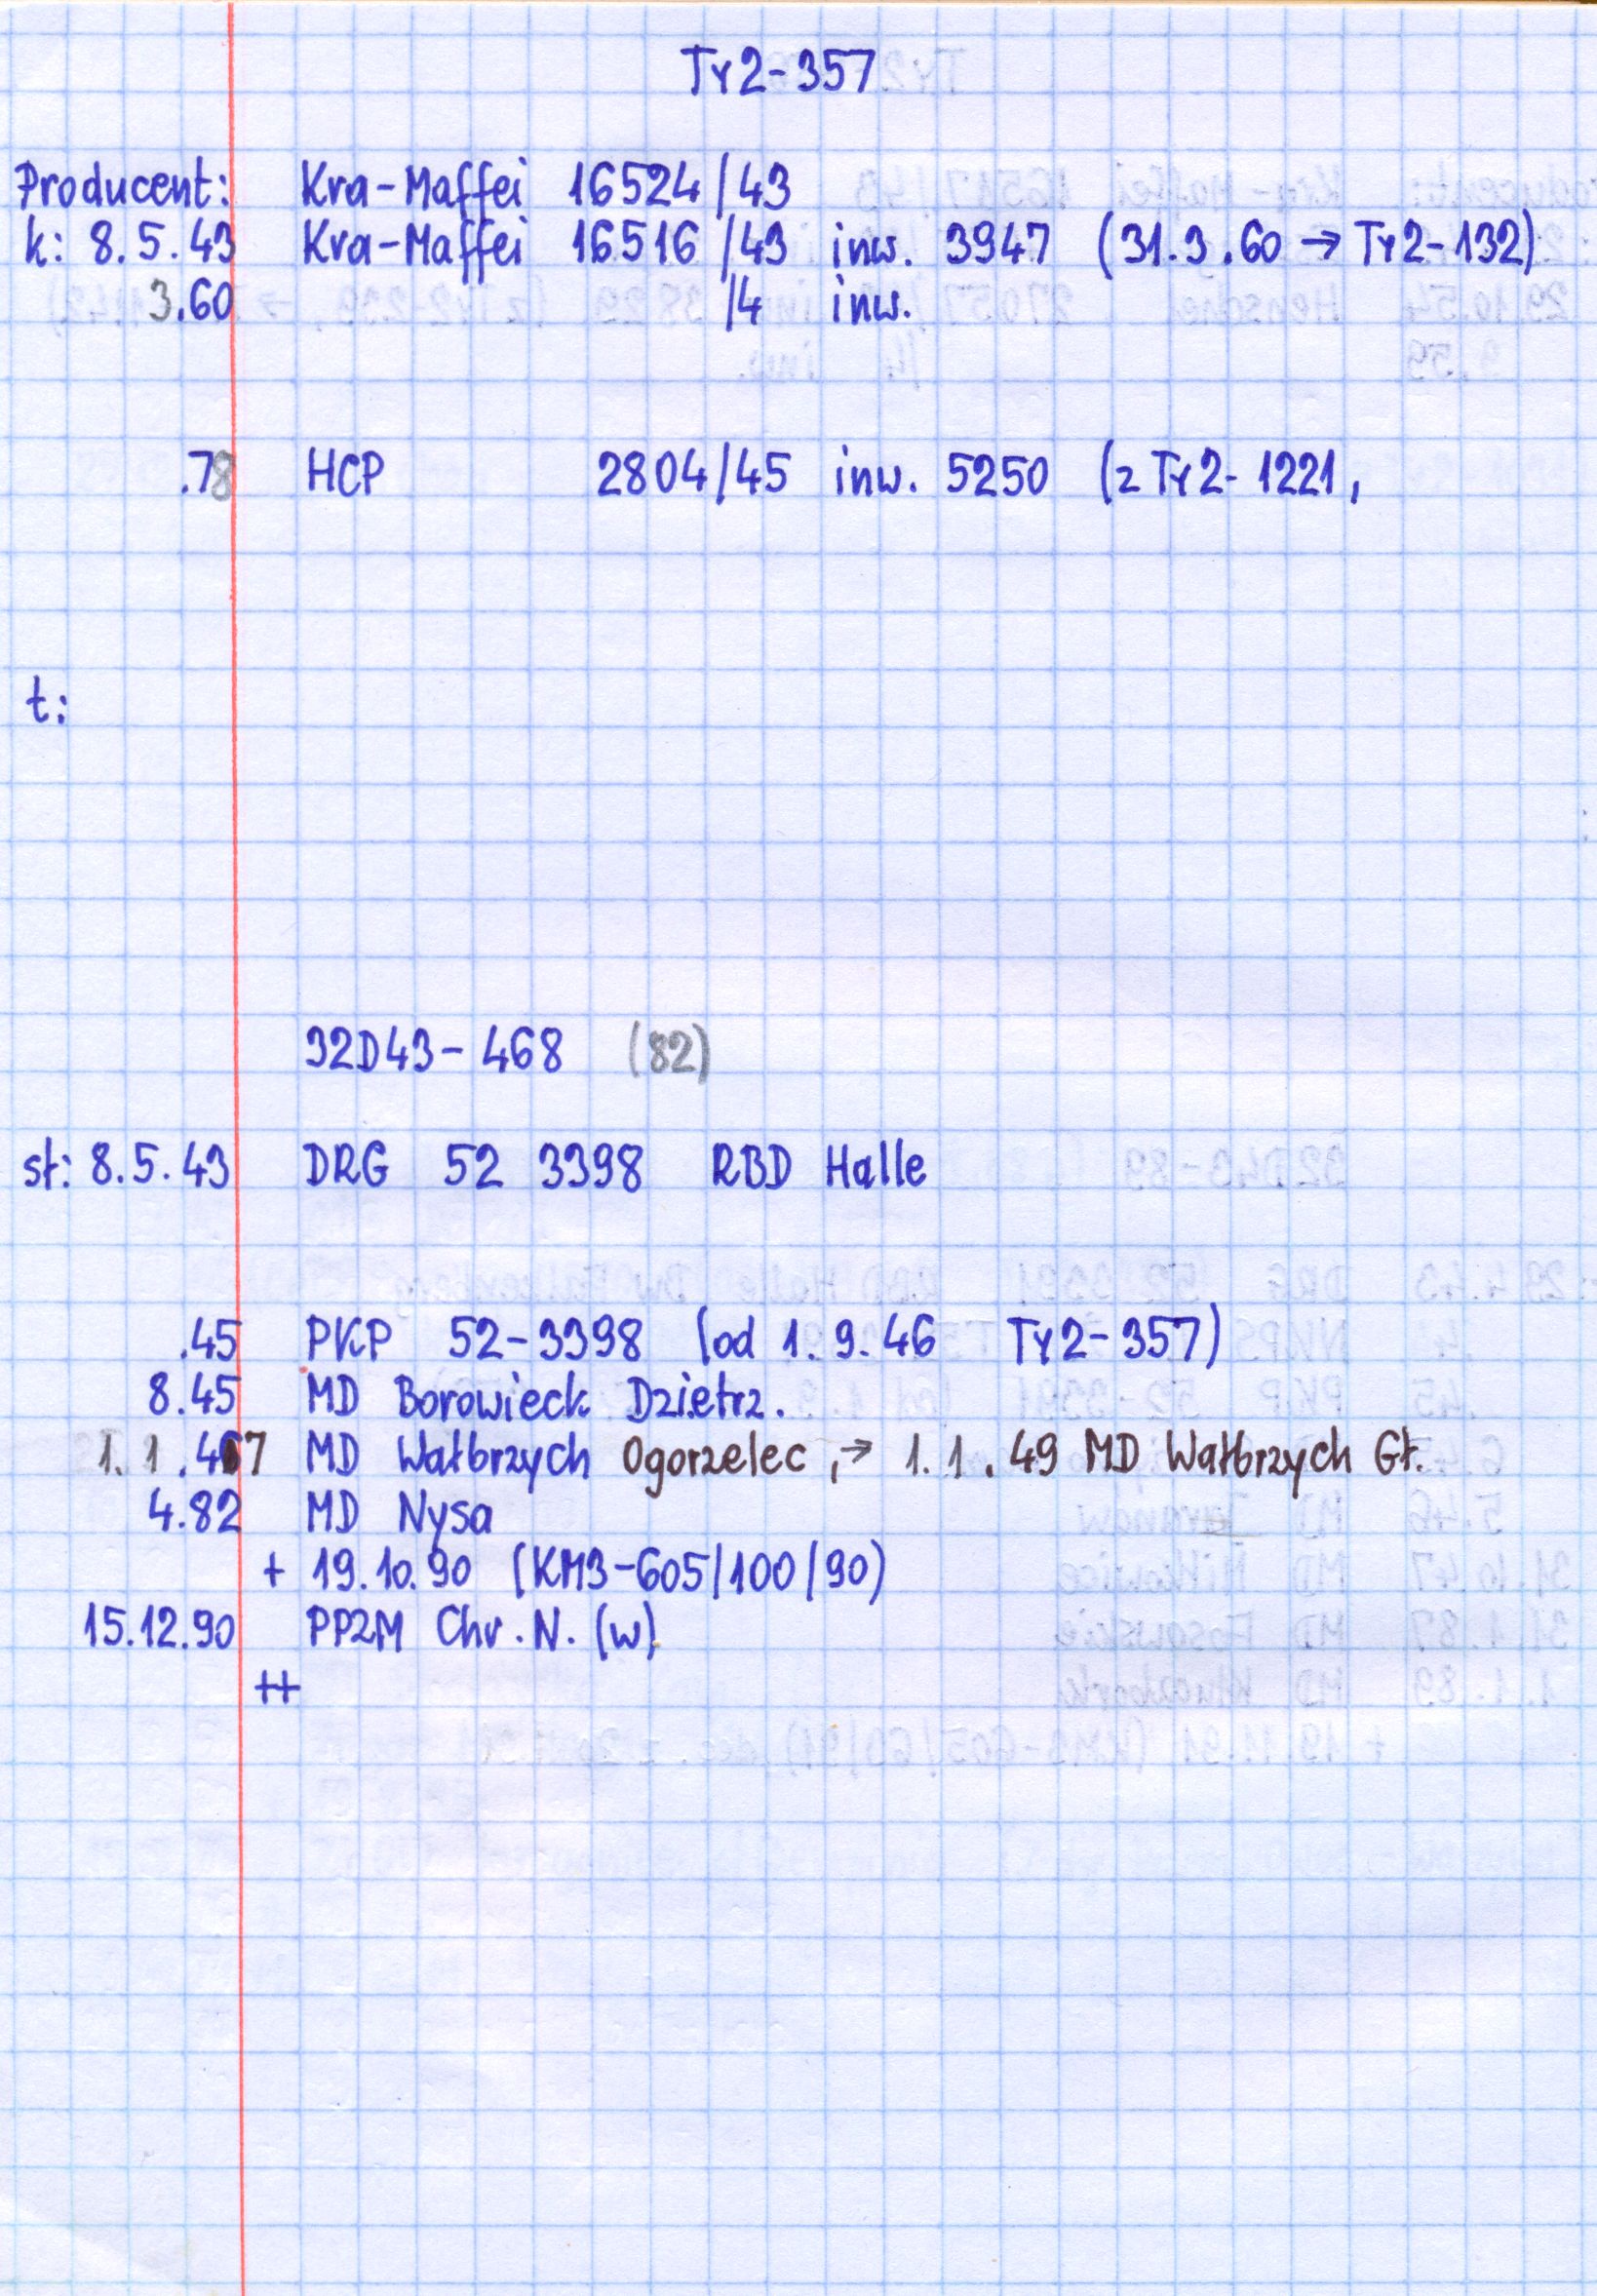 Ty2-357
Producent: Kra-Maffei 16524/43
k: 8.5.43 Kra-Maffei 16516/43 inw. 3947 (31.3.60 → Ty2-132)
3.60 /4 inw.
.78 HCP 2804/45 inw. 5250 (z Ty2-1221,
t:
32D43-468 (82)
st: 8.5.43 DRG 52 3398 RBD Halle
.45 PKP 52-3398 (od 1.9.46 Ty2-357)
8.45 MD Borowieck Dzietrz.
1.1.47 MD Wałbrzych Ogorzelec, → 1.1.49 MD Wałbrzych Gł.
4.82 MD Nysa
+ 19.10.90 (KM3-605/100/90)
15.12.90 PPZM Chr.N. (w)
++